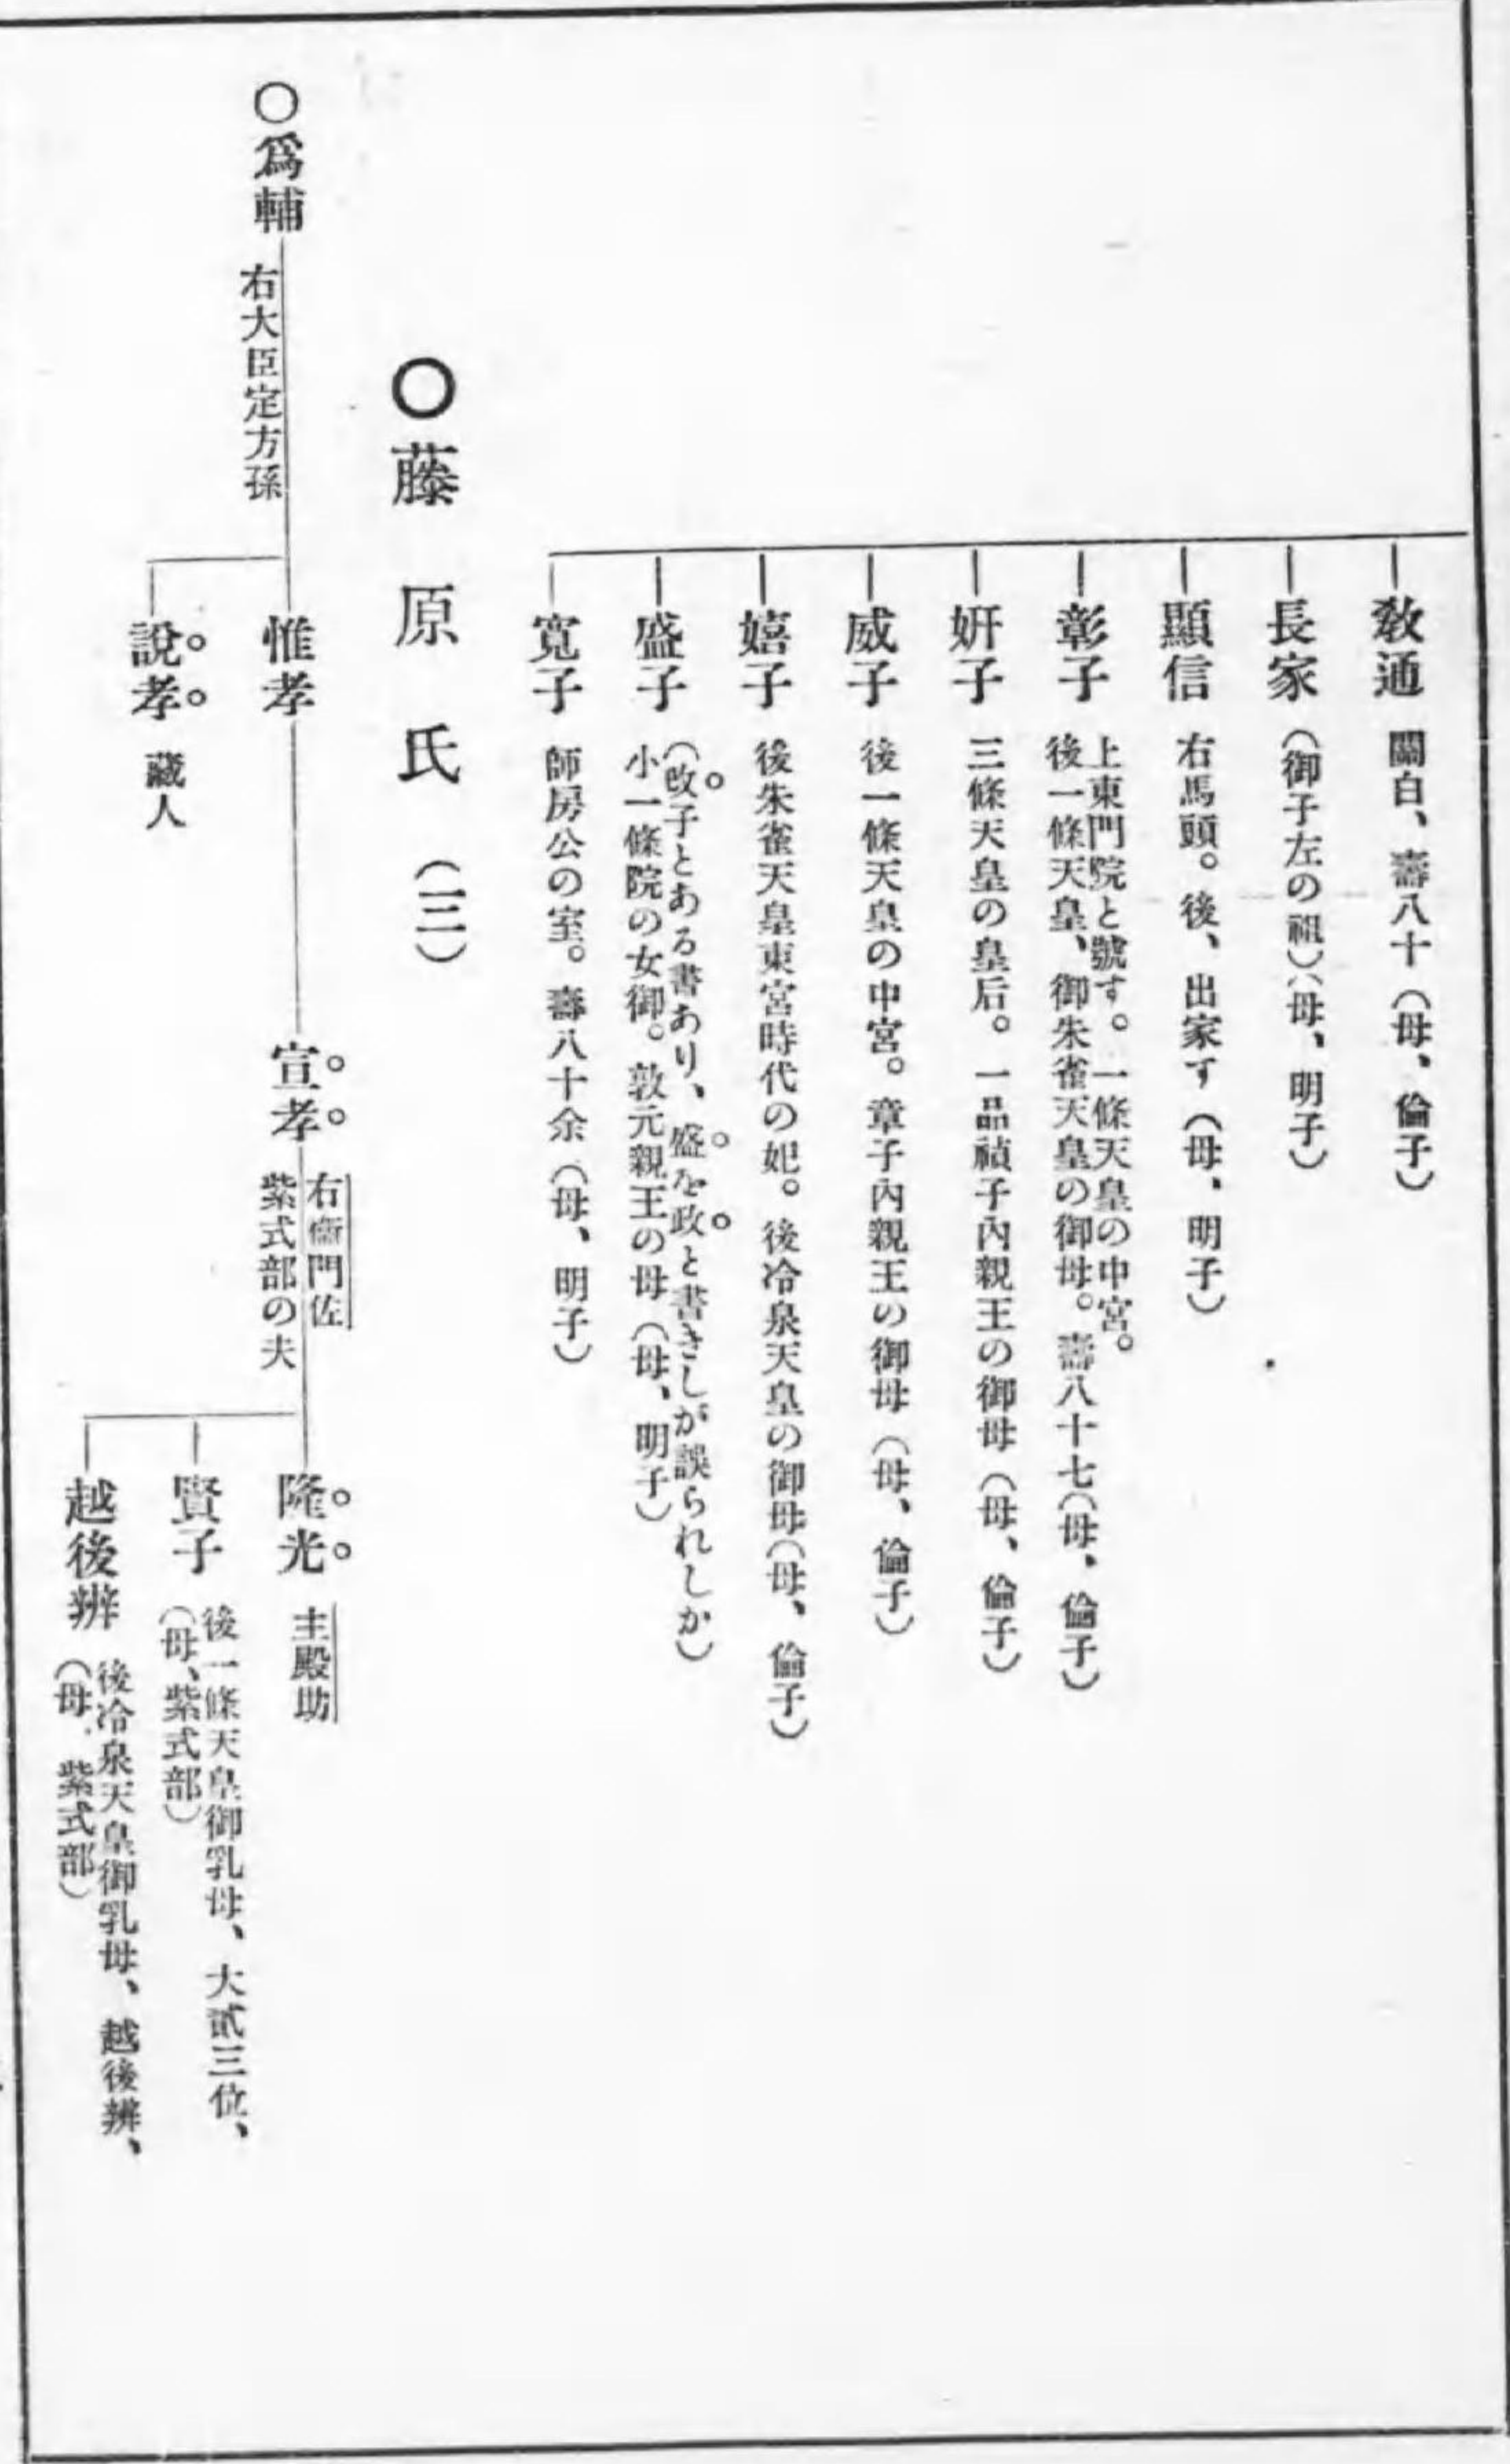 敎通 關白、壽八十（母、倫子）
長家（御子左の祖）（母、明子）
顯信 右馬頭。後、出家す（母、明子）
彰子 上東門院と號す。一條天皇の中宮。
後一條天皇、御朱雀天皇の御母。壽八十七（母、倫子）
妍子 三條天皇の皇后。一品禎子內親王の御母（母、倫子）
威子 後一條天皇の中宮。章子內親王の御母（母、倫子）
嬉子 後朱雀天皇東宮時代の妃。後冷泉天皇の御母（母、倫子）
盛子（改子とある書あり、盛を政と書きしが誤られしか）
小一條院の女御。敦元親王の母（母、明子）
寬子 師房公の室。壽八十余（母、明子）
〇藤原氏（三）
〇爲輔 右大臣定方孫
惟孝
宣孝 右衞門佐
紫式部の夫
隆光 主殿助
賢子 後一條天皇御乳母、大貳三位、
（母、紫式部）
越後辨 後冷泉天皇御乳母、越後辨、
（母、紫式部）
說孝 藏人